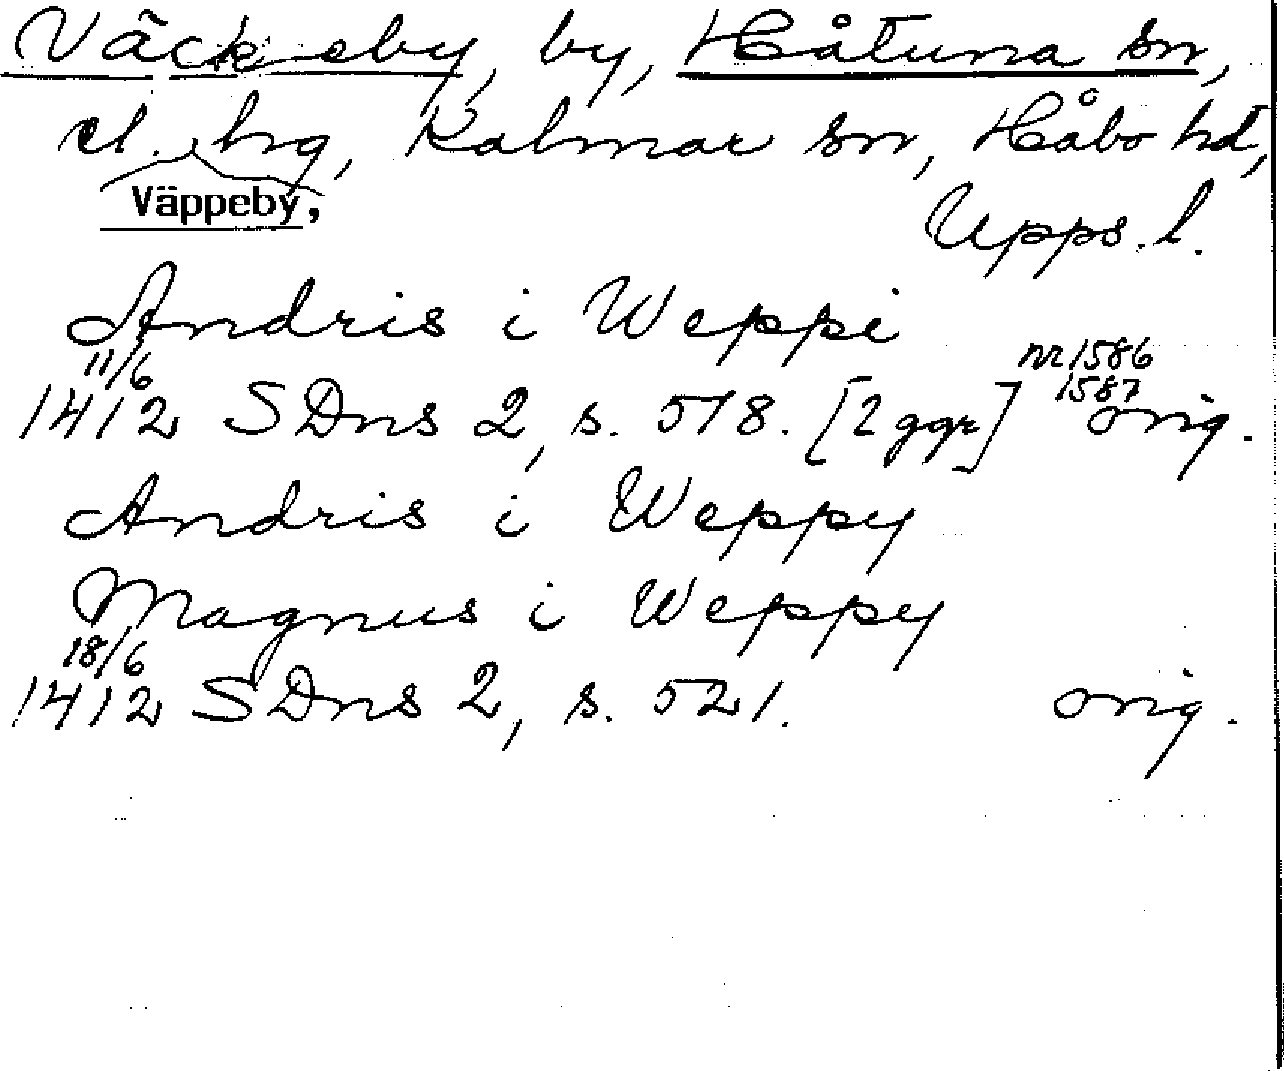 Väckeby, by, Håtuna sn,
el. hrg, Kalmar sn, Håbo hd,
Väppeby,
Upps. l.
Andris i Weppi
11/6 nr 1586
1587
1412 SDns 2, s. 518. [2 ggr] orig.
Andris i Weppy
Magnus i Weppy
18/6
1412 SDns 2, s. 521. orig.